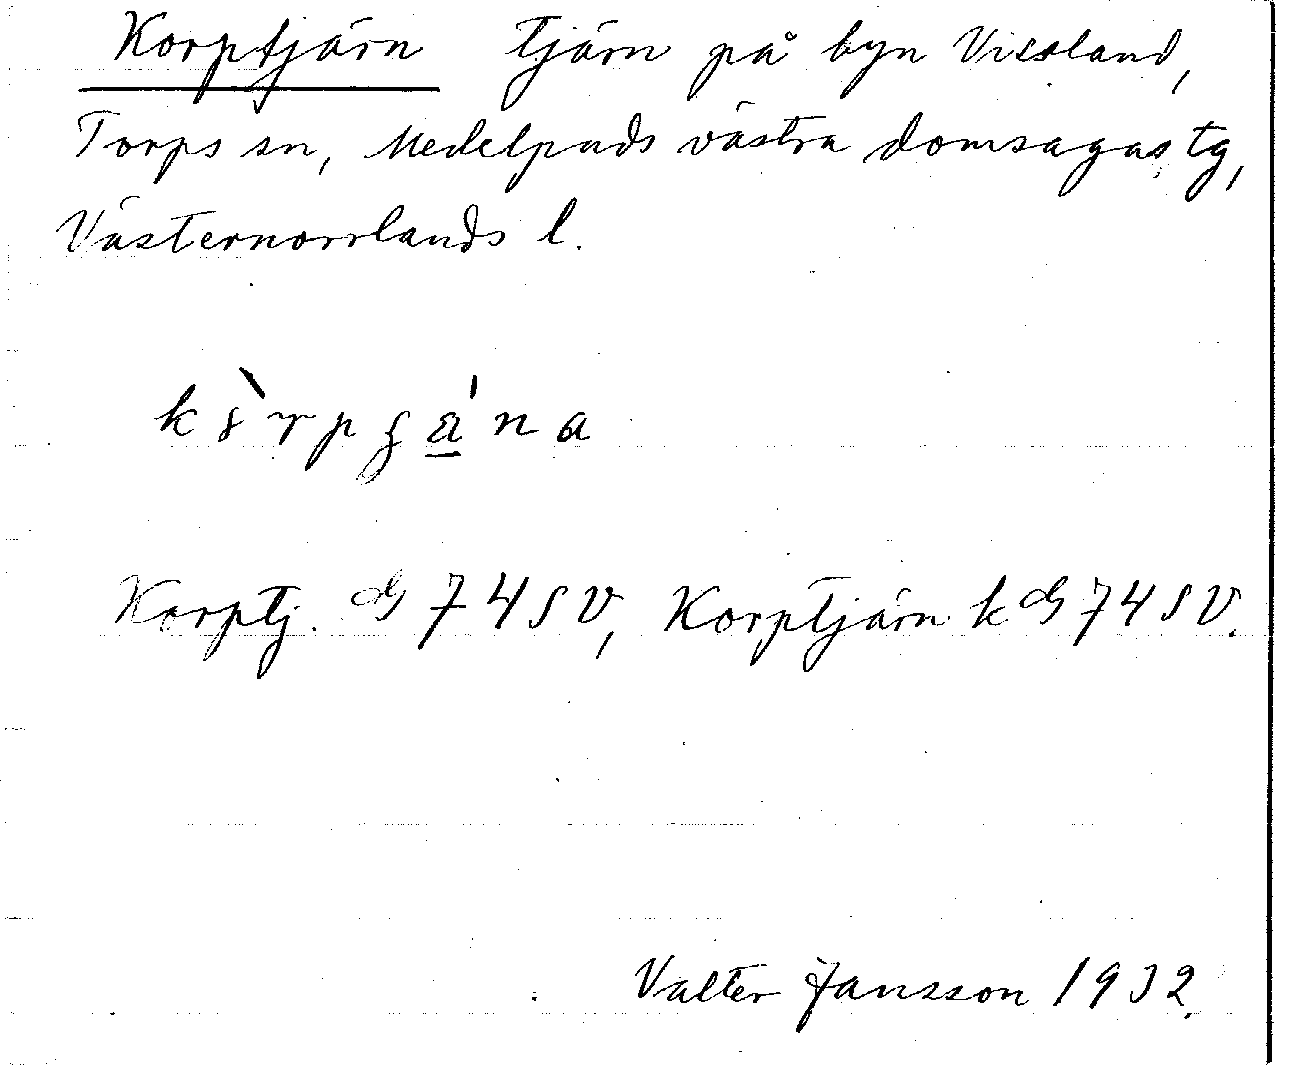 Korptjärn tjärn på byn Vissland,
Torps sn, Medelpads västra domsagas tg,
Västernorrlands l.
Korptj. G 74 SV, Korptjärn k G 74 SV.
Valter Jansson 1932.